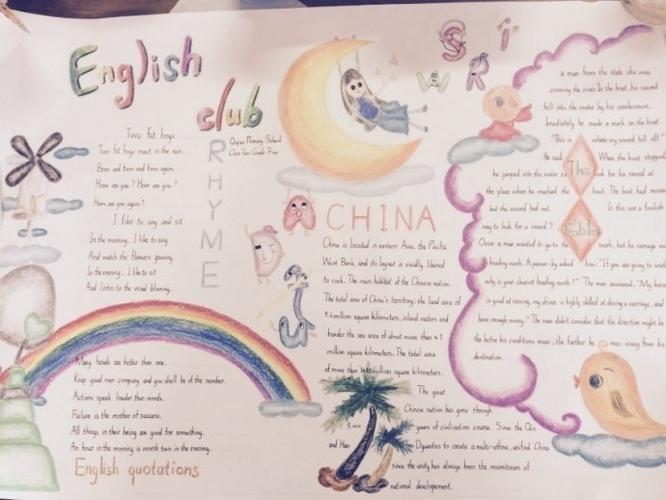 English
club
Two fat boys
Two fat boys meet in the rain.
Bow and bow and bow again.
How are you? How are you?
How are you again?
I like to sing and sit
In the morning, I like to sing
And watch the flowers growing.
In the evening, I like to sit
And listen to the wind blowing.
RHYME
Primary School
Class Two Grade Five
CHINA
China is located in eastern Asia, the Pacific
West Bank, and its layout is vividly likened
to cock. The main habitat of the Chinese nation.
The total area of China's territory: the land area of
9.6 million square kilometers, inland waters and
border the sea area of about more than 4.7
million square kilometers. The total area
of more than million square kilometers.
The great
Chinese nation has gone through
5,000 years of civilization course. Since the Qin
and Han Dynasties to create a multi-ethnic, unified China
since the unity has always been the mainstream of
national development.
The
Fable
a man from the state chu was
crossing the river. In the boat, his sword
fell into the water by his carelessness.
Immediately he made a mark on the boat.
"This is where my sword fell off."
He said. When the boat stopped
he jumped into the water to look for his sword at
the place where he marked the boat. The boat had moved
but the sword had not. Is this not a foolish
way to look for a sword?
Once a man wanted to go to the south, but his carriage was
heading north. A passer-by asked him: "If you are going to south
why is your chariot heading north?" The man answered, "My horse
is good at running, my driver is highly skilled at driving a carriage, and
have enough money." The man didn't consider that the direction might be
the better his conditions were, the further he was away from his
destination.
Many heads are better than one.
Keep good men company and you shall be of the number.
Actions speak louder than words.
Failure is the mother of success.
All things in their being are good for something.
An hour in the morning is worth two in the evening.
English quotations